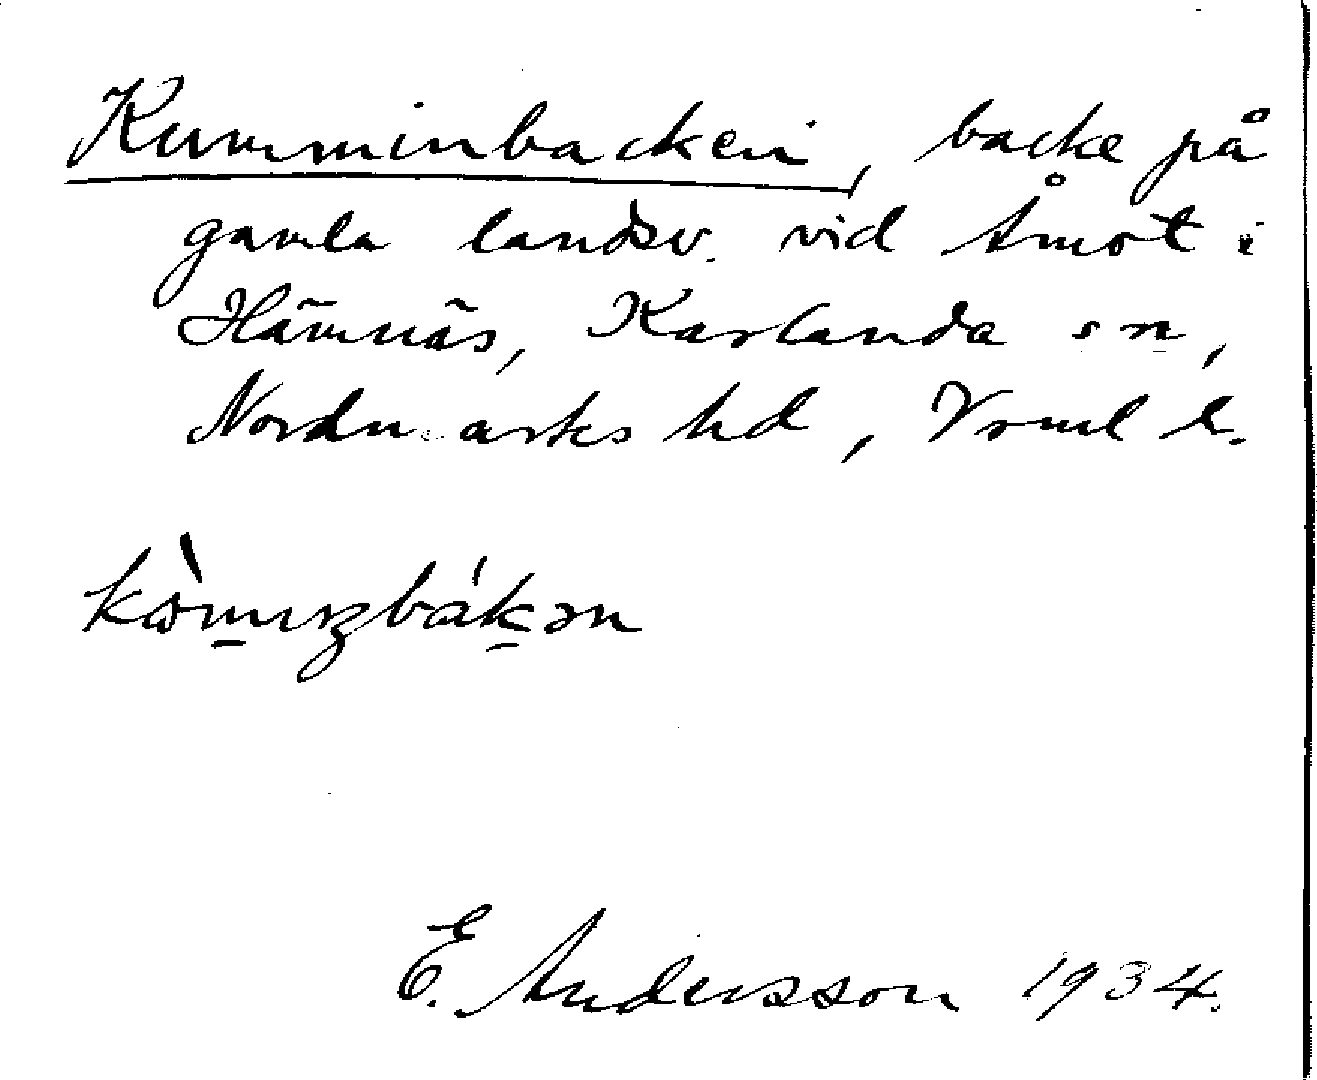 Kumminbacken, backe på
gamla landsv. vid Åmot i
Hämnäs, Karlanda sn,
Nordmarks hd, Vrml l.
E. Andersson 1934.